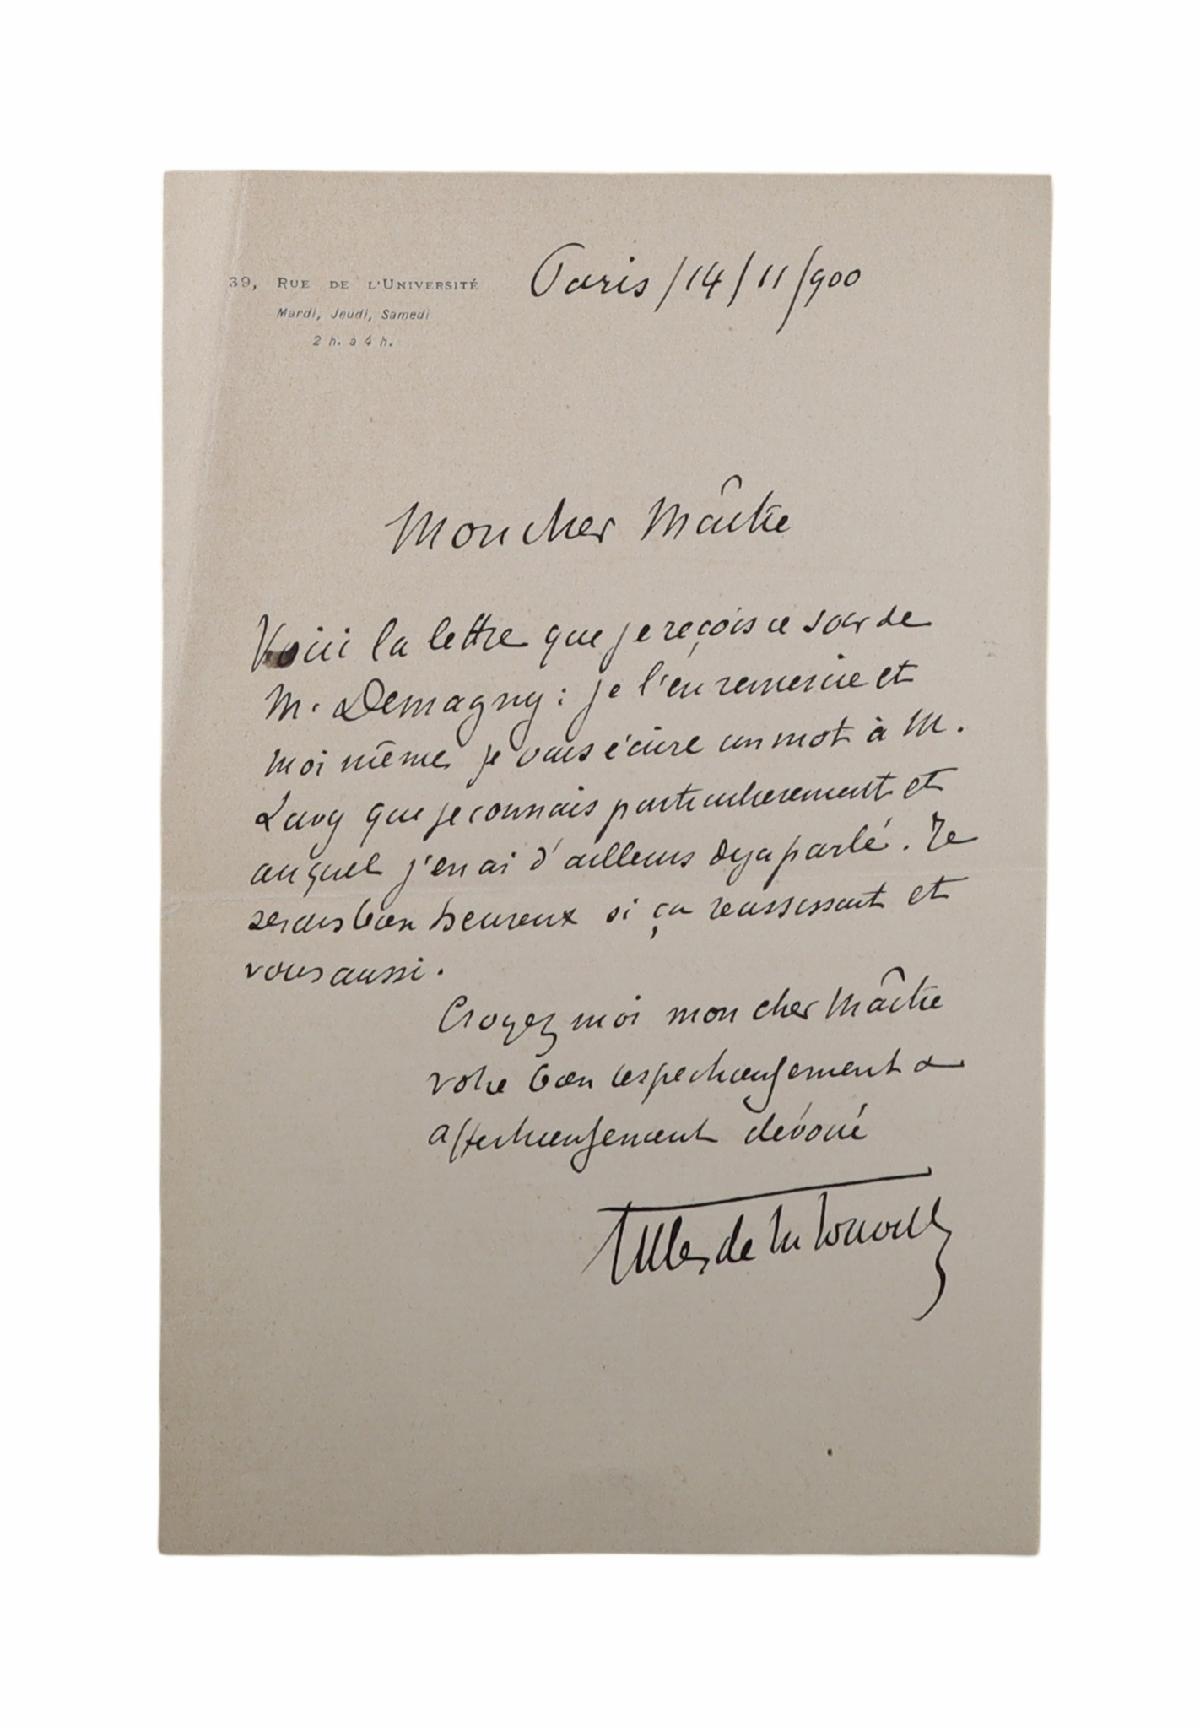 39, RUE DE L'UNIVERSITÉ
Mardi, Jeudi, Samedi
2 h. à 4 h.
Paris / 14 / 11 / 900
Mon cher Maître
Voici la lettre que je reçois ce soir de
M. Demagny : je l'en remercie et
moi même je vais écrire un mot à M.
que je connais particulierement et
auquel j'en ai d'ailleurs deja parlé. Je
serais bien heureux si ça reussissait et
vous aussi.
Croyez moi mon cher Maître
votre bien respectueusement &
affectueusement dévoué
Gilles de la Tourette